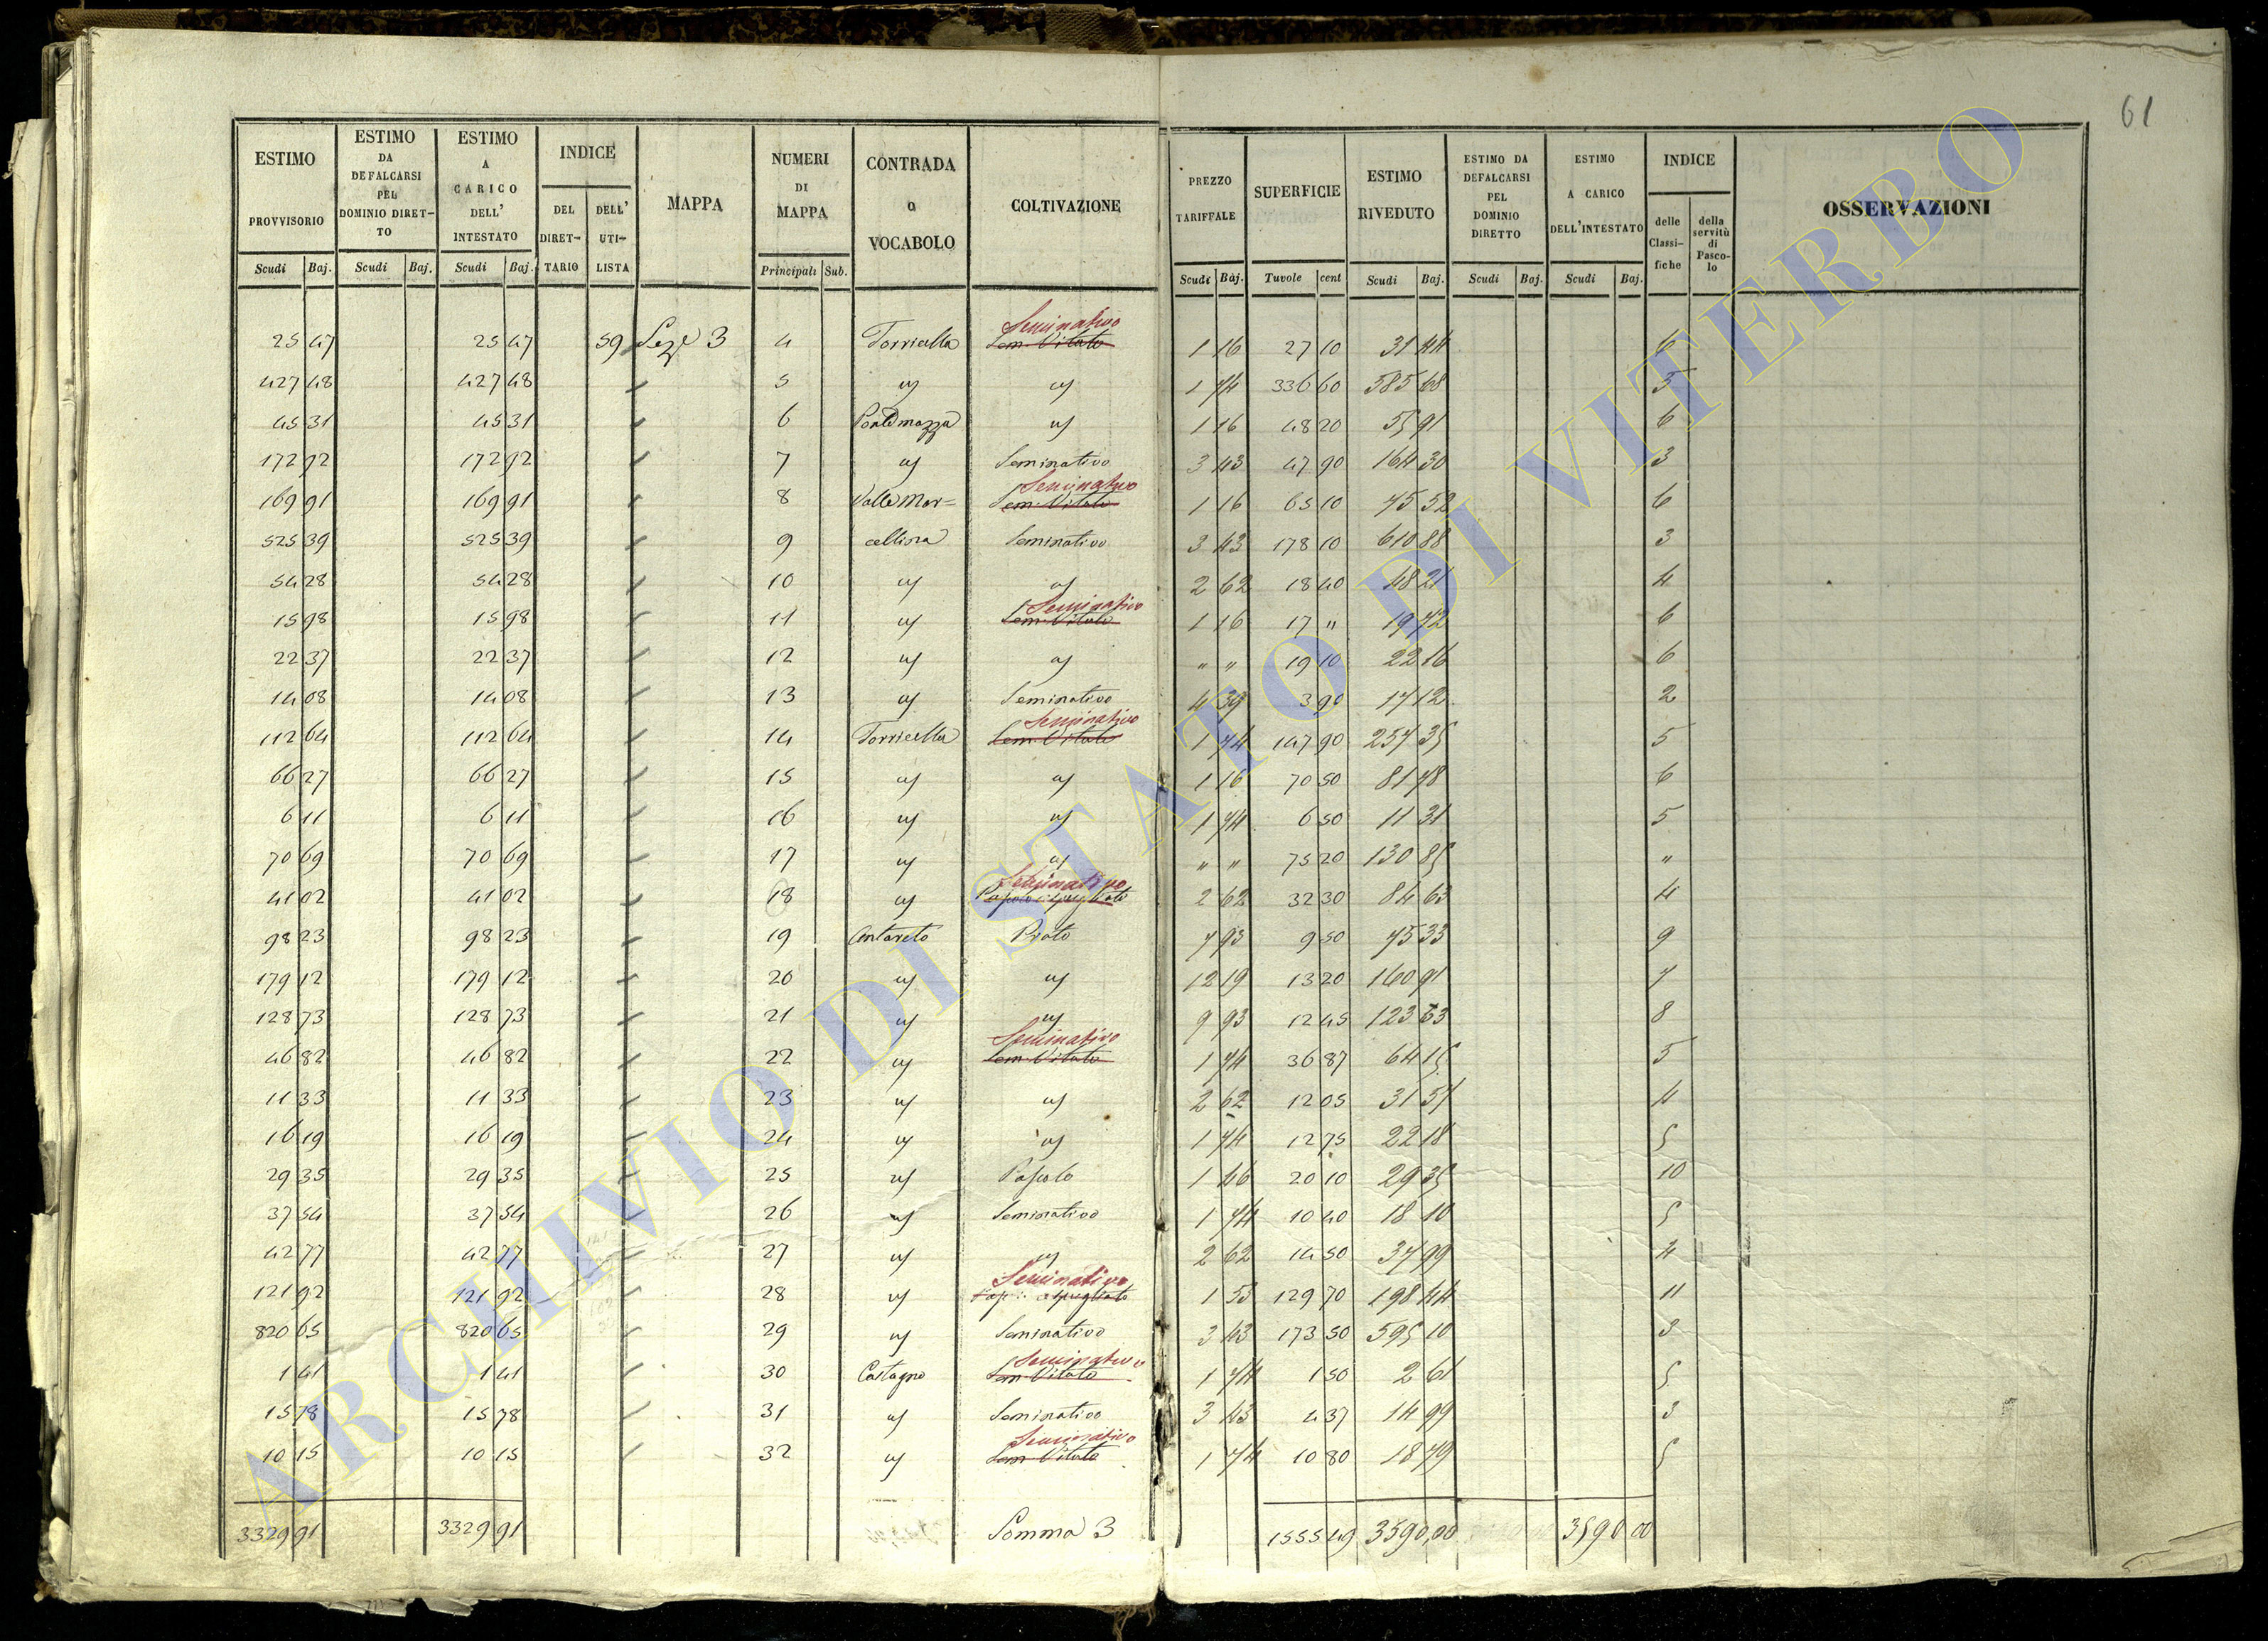 61
ESTIMO PROVVISORIO | ESTIMO DA DEFALCARSI PEL DOMINIO DIRET-TO | ESTIMO A CARICO DELL' INTESTATO | INDICE | MAPPA | NUMERI DI MAPPA | CONTRADA o VOCABOLO | COLTIVAZIONE | PREZZO TARIFFALE | SUPERFICIE | ESTIMO RIVEDUTO | ESTIMO DA DEFALCARSI PEL DOMINIO DIRETTO | ESTIMO A CARICO DELL'INTESTATO | INDICE | OSSERVAZIONI
DEL DIRET-TARIO | DELL' UTI-LISTA | delle Classi-fiche | della servitù di Pasco-lo
Scudi | Baj. | Scudi | Baj. | Scudi | Baj. | Principali | Sub. | Scudi | Baj. | Tavole | cent | Scudi | Baj. | Scudi | Baj. | Scudi | Baj.
25 47 | 25 47 | 59 | Sezе 3 | 4 | Torricella | Seminativo Sem. Vitato | 1 16 | 27 10 | 31 44 | 6
427 48 | 427 48 | 5 | 1 74 | 336 60 | 585 68 | 5
45 31 | 45 31 | 6 | 1 16 | 48 20 | 55 91 | 6
172 92 | 172 92 | 7 | Seminativo | 3 43 | 47 90 | 164 30 | 3
169 91 | 169 91 | 8 | Valle Mar= | Seminativo Sem. Vitato | 1 16 | 65 10 | 75 52 | 6
525 39 | 525 39 | 9 | cellina | Seminativo | 3 43 | 178 10 | 610 88 | 3
54 28 | 54 28 | 10 | 2 62 | 18 40 | 48 21 | 4
15 98 | 15 98 | 11 | Seminativo Sem. Vitato | 1 16 | 17 " | 19 72 | 6
22 37 | 22 37 | 12 | " " | 19 10 | 22 16 | 6
14 08 | 14 08 | 13 | Seminativo | 4 39 | 3 90 | 17 12 | 2
112 64 | 112 64 | 14 | Torricella | Seminativo Sem. Vitato | 1 74 | 147 90 | 257 35 | 5
66 27 | 66 27 | 15 | 1 16 | 70 50 | 81 78 | 6
6 11 | 6 11 | 16 | 1 74 | 6 50 | 11 31 | 5
70 69 | 70 69 | 17 | " " | 75 20 | 130 85 | "
41 02 | 41 02 | 18 | Seminativo Pascolo cespugliato | 2 62 | 32 30 | 84 63 | 4
98 23 | 98 23 | 19 | Antareto | Prato | 7 93 | 9 50 | 75 33 | 9
179 12 | 179 12 | 20 | 12 19 | 13 20 | 160 91 | 7
128 73 | 128 73 | 21 | 9 93 | 12 45 | 123 63 | 8
46 82 | 46 82 | 22 | Seminativo Sem. Vitato | 1 74 | 36 87 | 64 15 | 5
11 33 | 11 33 | 23 | 2 62 | 12 05 | 31 57 | 4
16 19 | 16 19 | 24 | 1 74 | 12 75 | 22 18 | 5
29 35 | 29 35 | 25 | Pascolo | 1 46 | 20 10 | 29 35 | 10
37 54 | 37 54 | 26 | Seminativo | 1 74 | 10 40 | 18 10 | 5
42 77 | 42 77 | 27 | 2 62 | 14 50 | 37 99 | 4
121 92 | 121 92 | 28 | Seminativo | 1 53 | 129 70 | 198 44 | 11
820 65 | 820 65 | 29 | Seminativo | 3 43 | 173 50 | 595 10 | 3
1 41 | 1 41 | 30 | Castagno | Seminativo Sem. Vitato | 1 74 | 1 50 | 2 61 | 5
15 78 | 15 78 | 31 | Seminativo | 3 43 | 4 37 | 14 99 | 3
10 15 | 10 15 | 32 | Seminativo Sem. Vitato | 1 74 | 10 80 | 18 79 | 5
3329 91 | 3329 91 | Somma 3 | 1555 49 | 3590,00 | 3590 00
ARCHIVIO DI STATO DI VITERBO